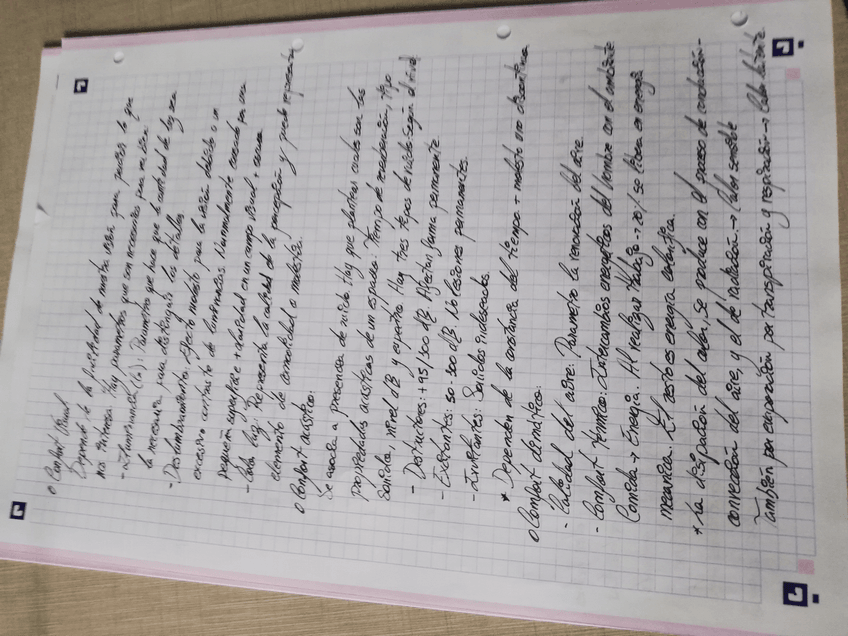 o Confort Visual
Depende de la facilidad de nuestra visión para percibir lo que
nos interesa. Hay parámetros que son necesarios para medirlo:
- Iluminancia (lx): Parámetro que hace que la cantidad de luz sea
la necesaria para distinguir los detalles.
- Deslumbramiento: efecto molesto para la visión debido a un
excesivo contraste de luminancias. Normalmente causado por una
pequeña superficie + claridad en un campo visual + oscuro
- Color luz: Representa la calidad de la percepción y puede representar
elemento de comodidad o molestia.
o Confort acústico:
Se asocia a presencia de ruido. Hay que plantear cuales son las
propiedades acústicas de un espacio. Tiempo de reverberación, tipo
sonido, nivel dB y espectro. Hay tres tipos de ruidos según el nivel
- Destructores: + 95/100 dB. Afectan forma permanente.
- Excitantes: 50 - 100 dB. No lesiones permanentes.
- Irritantes: Sonidos indeseados.
* Dependen de la constancia del tiempo + molesto uno discontinuo
o Confort climático:
- Calidad del aire: Parámetro la renovación del aire.
- Confort térmico: Intercambios energéticos del hombre con el ambiente
Comida → Energía. Al realizar trabajo → 20% se libera en energía
mecánica. El resto es energía calorífica.
* La disipación del calor, se produce con el proceso de conducción -
convección del aire, y el de radiación → Calor sensible
También por evaporación por transpiración y respiración → Calor latente